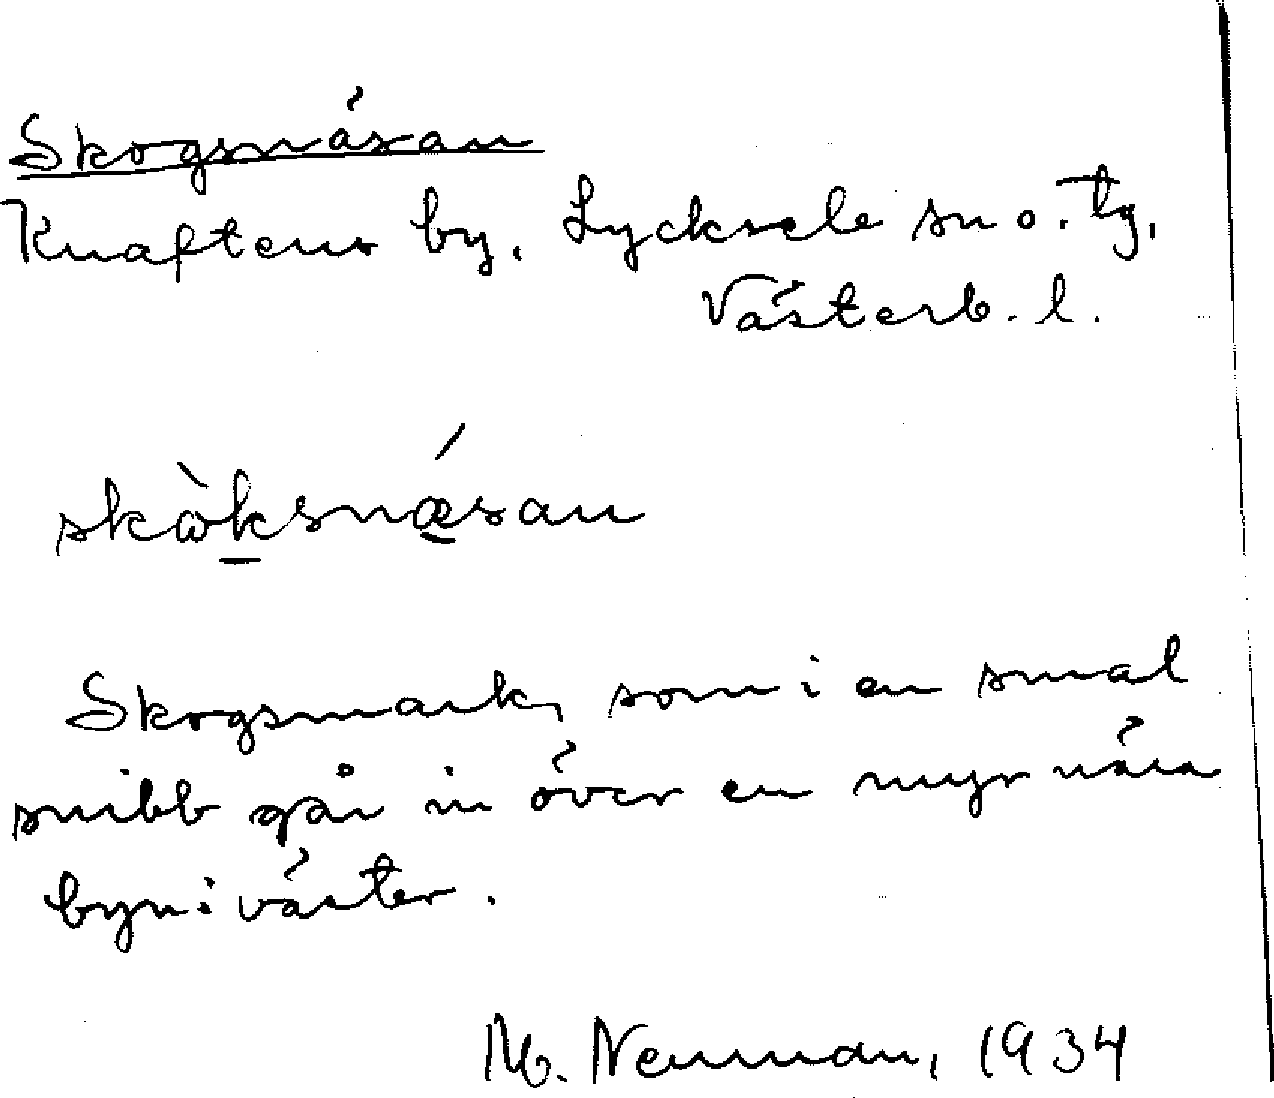 Skogsnäsan
Knaftens by. Lycksele sn o. tg.
Västerb. l.
skὼksnǽsan
Skogsmark, som i en smal
snibb går in över en myr nära
byn i väster.
M. Nenuman, 1934